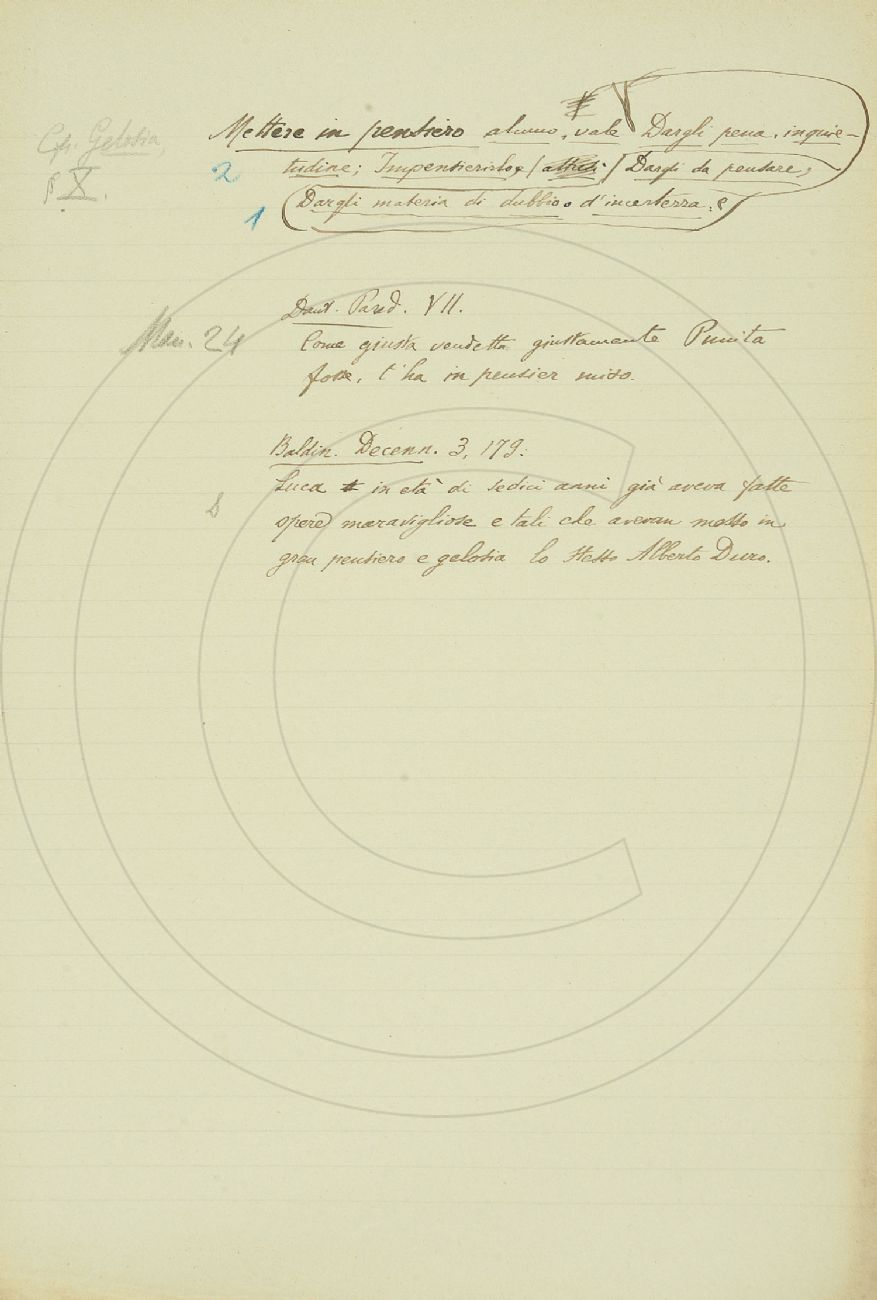 Cfr. Gelosia,
§ X.
Mettere in pensiero alcuno, vale Dargli pena, inquie-
2 tudine; Impensierirlo; Dargli da pensare;
1 Dargli materia di dubbio o d'incertezza, e
Dant. Parad. VII.
Man. 24 Come giusta vendetta giustamente Punita
fosse, t'ha in pensier miso.
Baldin. Decenn. 3, 179:
Luca in età di sedici anni già aveva fatte
opere maravigliose e tali che avevan messo in
gran pensiero e gelosia lo stesso Alberto Duro.